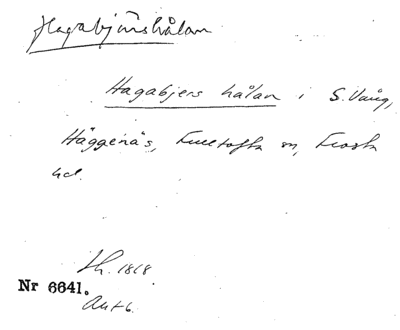 Hagabjershålan
Hagabjers hålan i S. Vång,
Häggenäs, Fulltofta sn, Frosta
hd.
Sk. 1818
Nr 6641.
Akt 6.